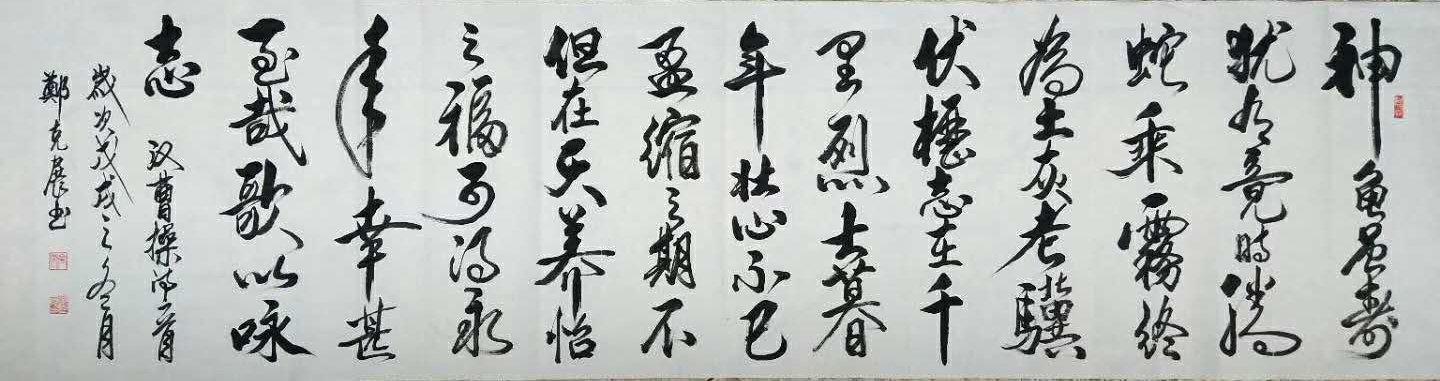 神龟虽寿
犹有竟時騰
蛇乘霧終
為土灰老驥
伏櫪志在千
里烈士暮
年壮心不已
盈縮之期不
但在天养怡
之福可得永
年幸甚
至哉歌以咏
志 汉曹操诗一首
歲次戊戌之冬月
鄭克展书